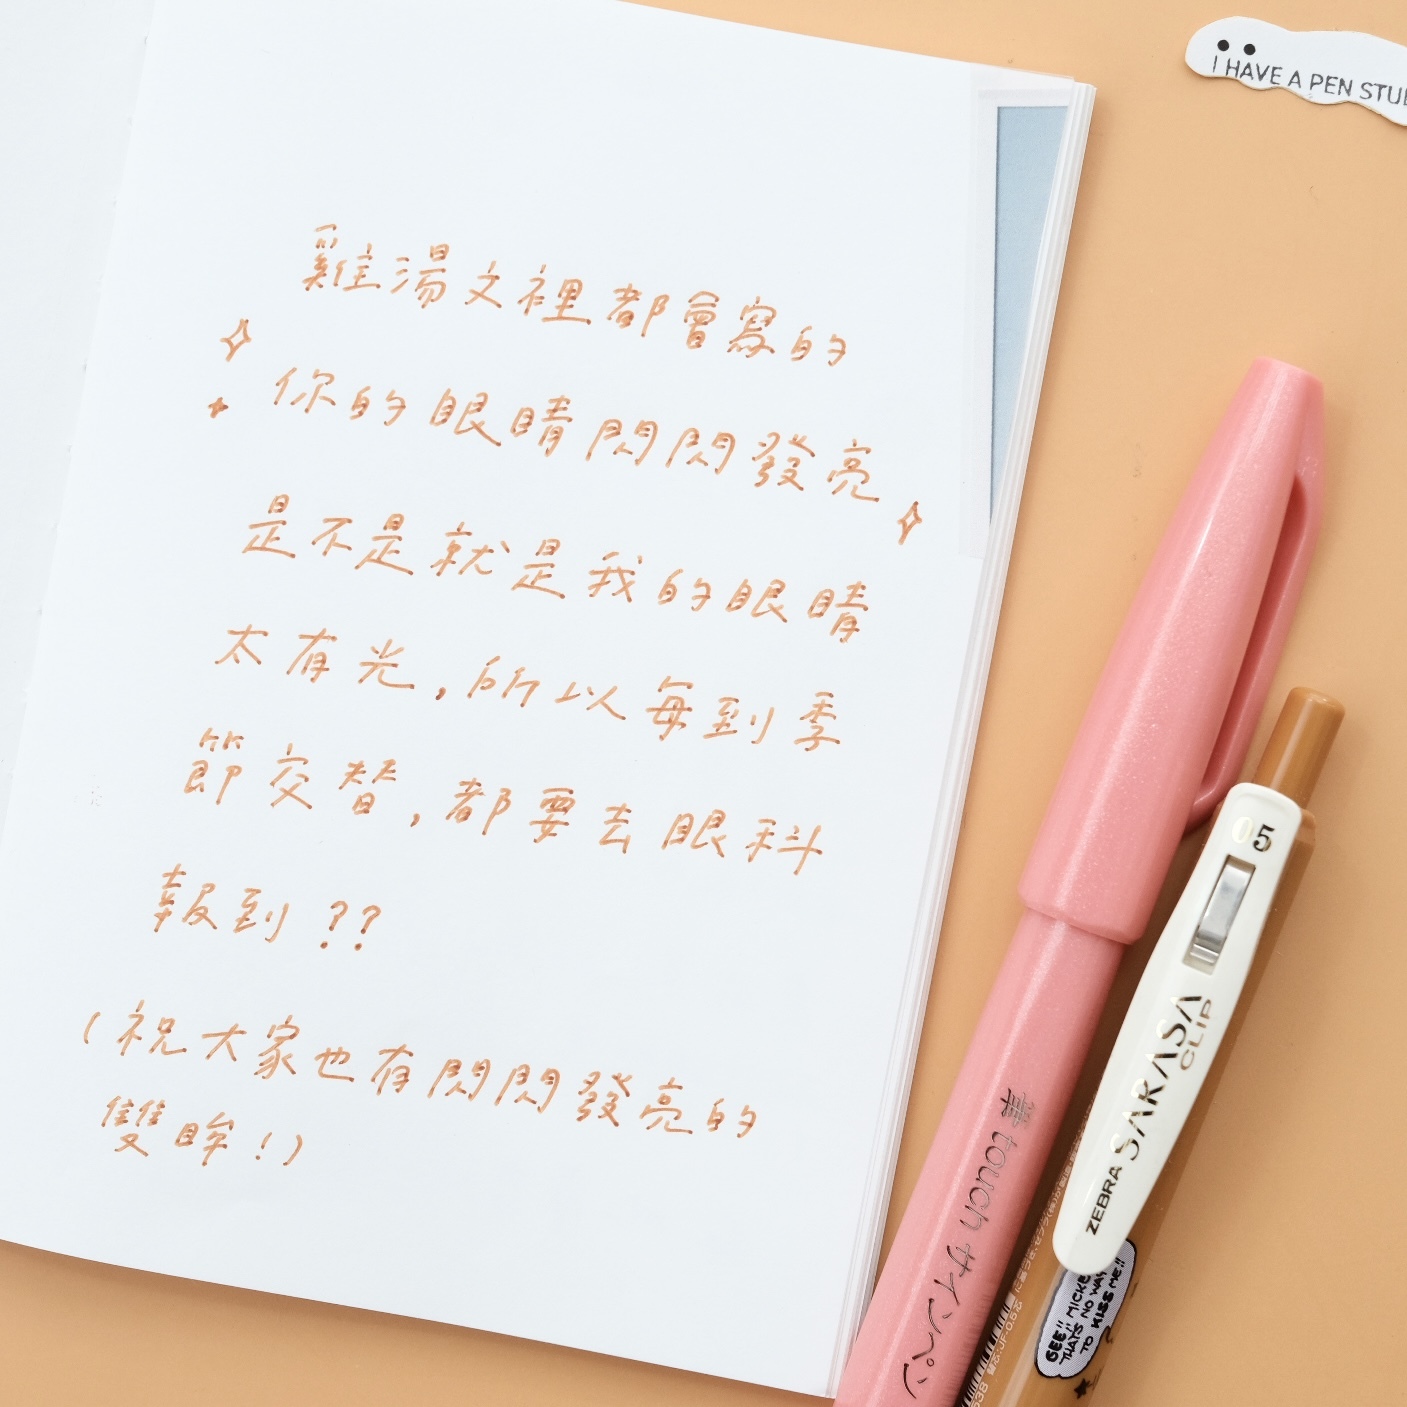 I HAVE A PEN STU
雞湯文裡都會寫的
你的眼睛閃閃發亮
是不是就是我的眼睛
太有光，所以每到季
節交替，都要去眼科
報到？？
（祝大家也有閃閃發亮的
雙眸！）
筆touchサインペン
05
ZEBRA SARASA
CLIP
GEE!! MICKE
THATS NO WAY
TO KISS ME!!